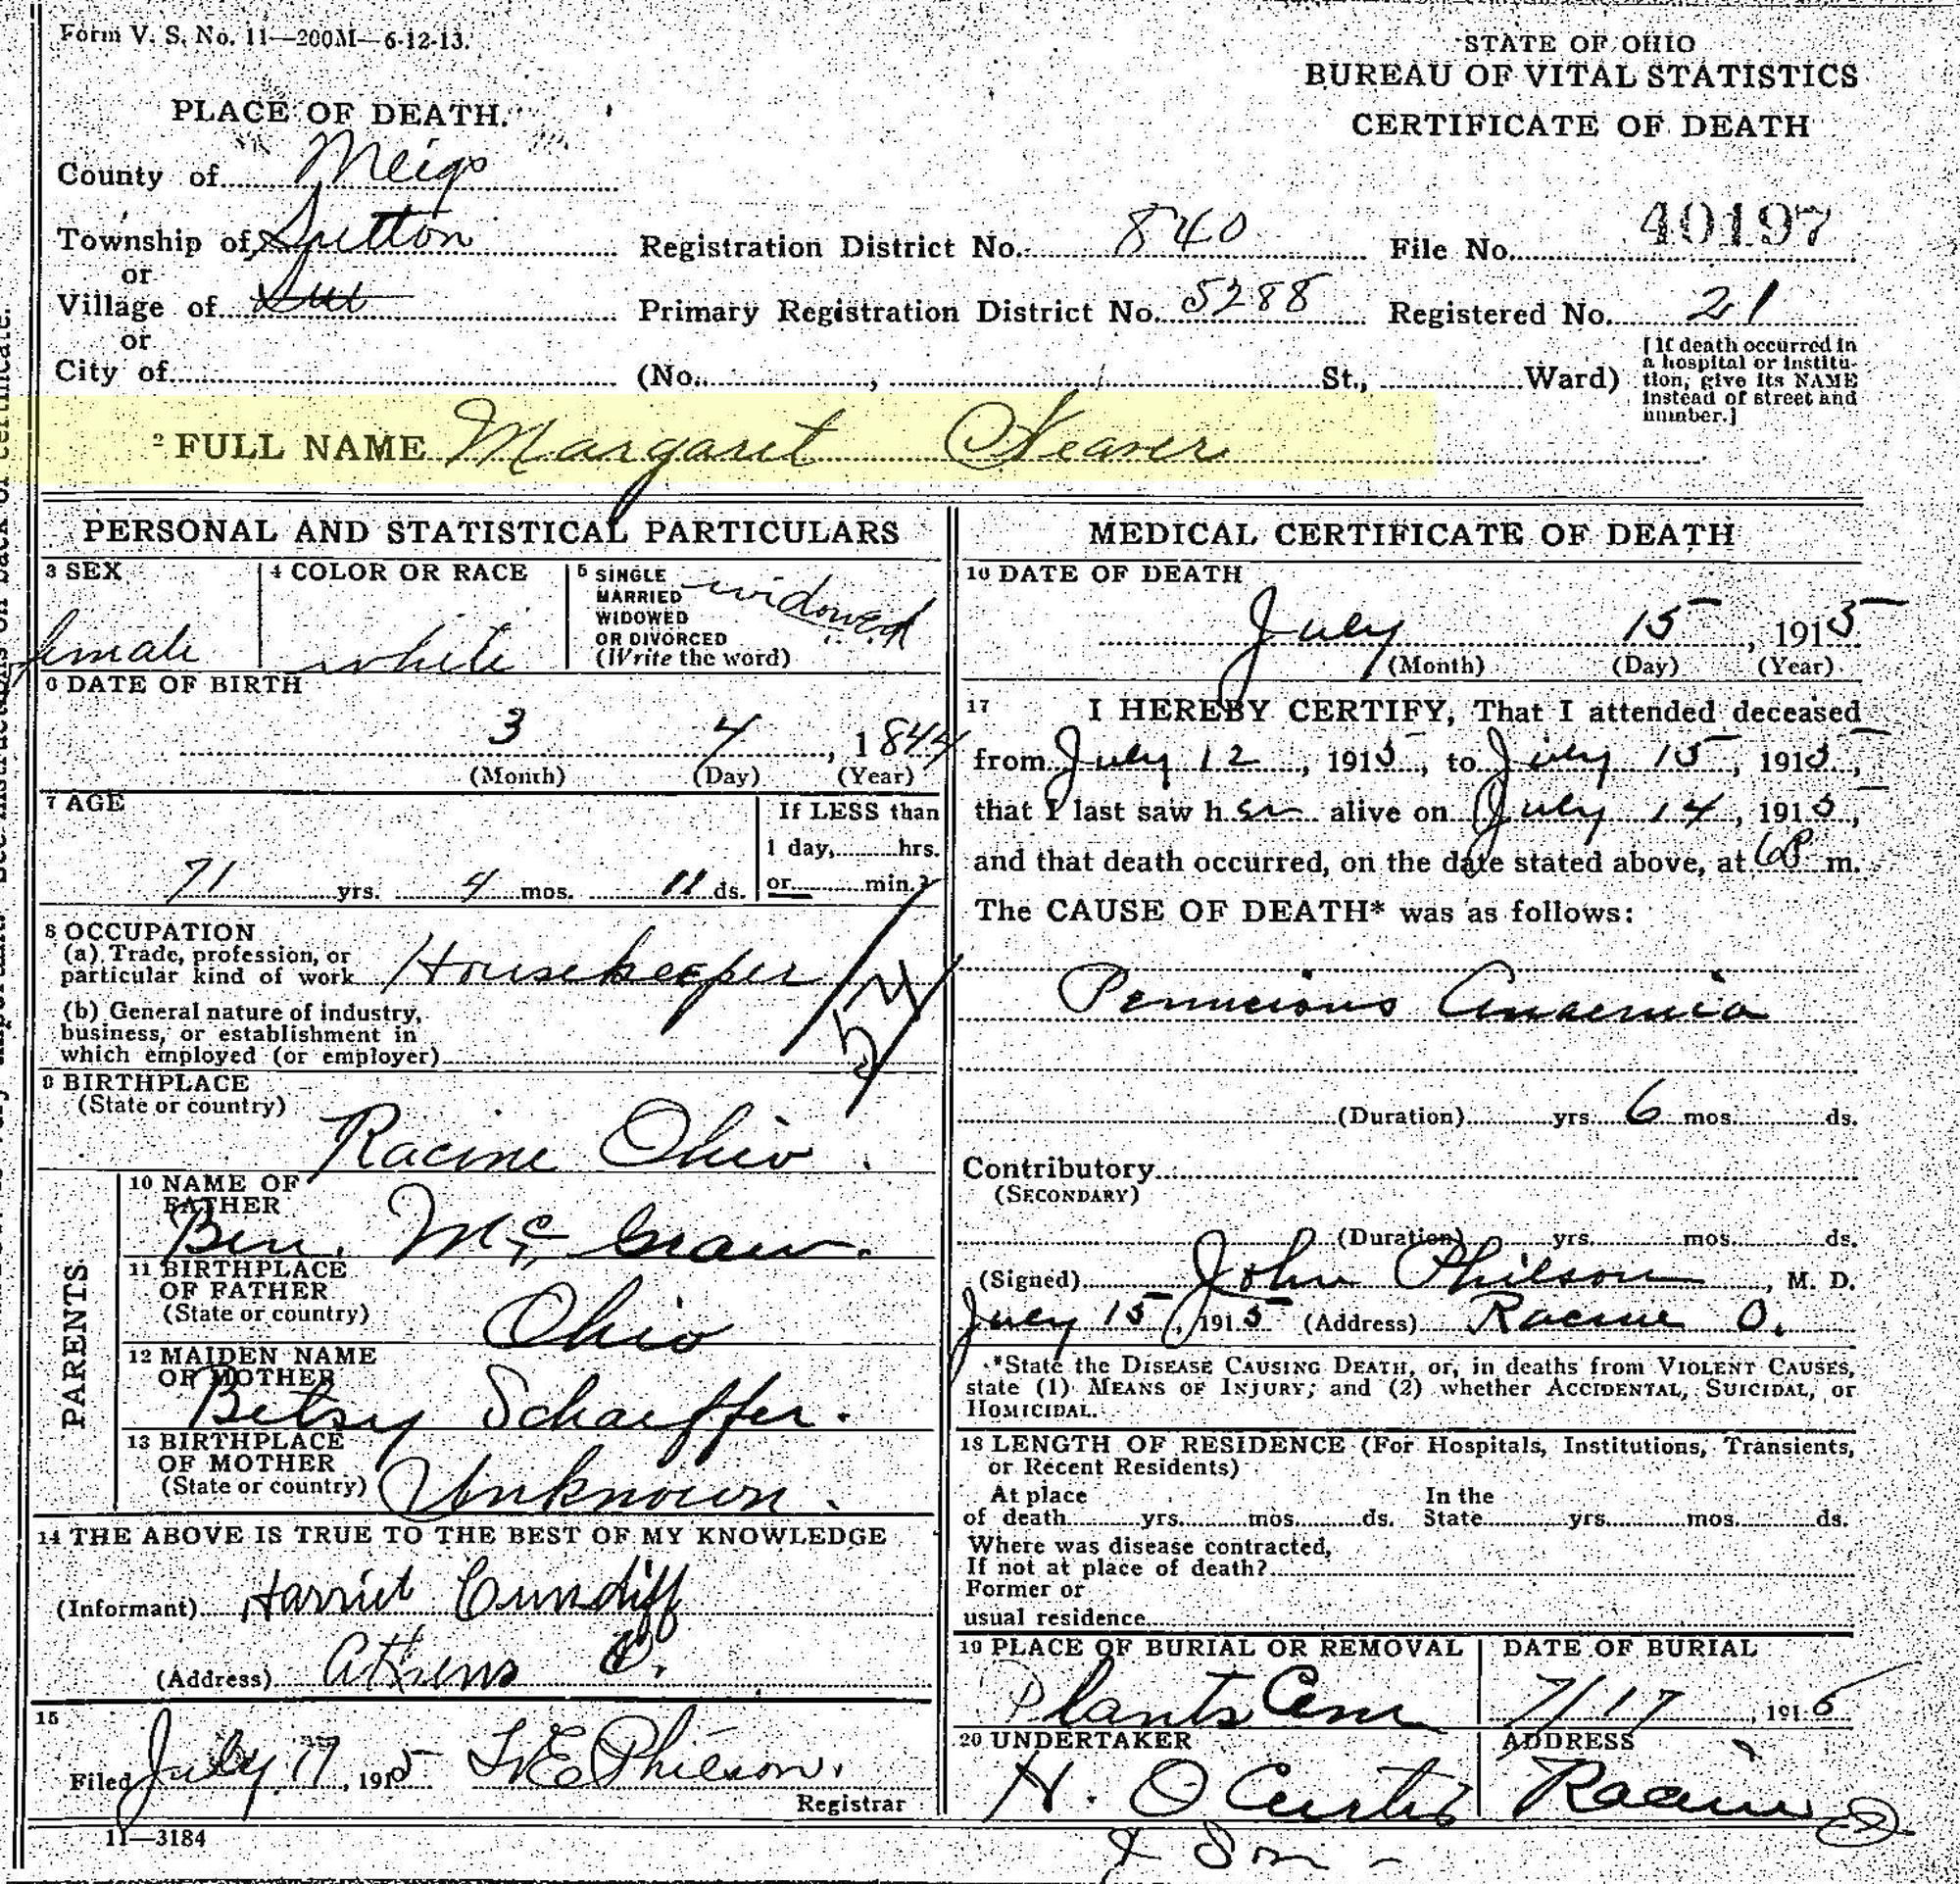 Form V. S. No. 11—200M—6-12-13.
STATE OF OHIO
BUREAU OF VITAL STATISTICS
CERTIFICATE OF DEATH
PLACE OF DEATH.
County of Meigs
Township of Sutton Registration District No. 840 File No. 40197
or
Village of Sut Primary Registration District No. 5288 Registered No. 21
or
City of (No. , St., Ward)
[If death occurred in
a hospital or institu-
tion, give its NAME
instead of street and
number.]
2 FULL NAME Margaret
PERSONAL AND STATISTICAL PARTICULARS
3 SEX
female
4 COLOR OR RACE
white
5 SINGLE
MARRIED
WIDOWED
OR DIVORCED
(Write the word)
widowed
6 DATE OF BIRTH
3 4, 1844
(Month) (Day) (Year)
7 AGE
71 yrs. 4 mos. 11 ds.
If LESS than
1 day, hrs.
or min.?
8 OCCUPATION
(a) Trade, profession, or
particular kind of work Housekeeper
(b) General nature of industry,
business, or establishment in
which employed (or employer)
9 BIRTHPLACE
(State or country)
Racine Ohio.
PARENTS
10 NAME OF
FATHER
Ben. McGraw.
11 BIRTHPLACE
OF FATHER
(State or country)
Ohio
12 MAIDEN NAME
OF MOTHER
Betsy Schaeffer.
13 BIRTHPLACE
OF MOTHER
(State or country) Unknown.
14 THE ABOVE IS TRUE TO THE BEST OF MY KNOWLEDGE
(Informant) Harriet Cundiff
(Address) Athens O.
15
Filed July 17, 1915 Philson.
Registrar
11—3184
MEDICAL CERTIFICATE OF DEATH
16 DATE OF DEATH
July 15, 1915
(Month) (Day) (Year)
17 I HEREBY CERTIFY, That I attended deceased
from July 12, 1915, to July 15, 1915,
that I last saw her alive on July 14, 1915,
and that death occurred, on the date stated above, at 6 P m.
The CAUSE OF DEATH* was as follows:
Pernicious Anaemia
(Duration) yrs. 6 mos. ds.
Contributory
(SECONDARY)
(Duration) yrs. mos. ds.
(Signed) John Philson, M. D.
July 15, 1915 (Address) Racine O.
*State the DISEASE CAUSING DEATH, or, in deaths from VIOLENT CAUSES,
state (1) MEANS OF INJURY; and (2) whether ACCIDENTAL, SUICIDAL, or
HOMICIDAL.
18 LENGTH OF RESIDENCE (For Hospitals, Institutions, Transients,
or Recent Residents)
At place In the
of death yrs. mos. ds. State yrs. mos. ds.
Where was disease contracted,
If not at place of death?
Former or
usual residence
19 PLACE OF BURIAL OR REMOVAL
Plants Cem
DATE OF BURIAL
7/17, 1915
20 UNDERTAKER
H. O Curtis
& Son -
ADDRESS
Racine O